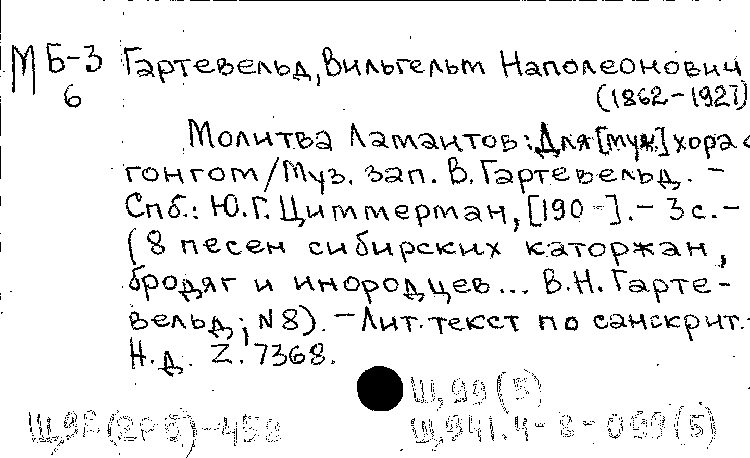 МБ-3 Гартевельд, Вильгельм Наполеонович
6 (1862-1927)
Молитва Ламаитов: Для [муж] хора с
гонгом/Муз. зап. В. Гартевельд. -
Спб.: Ю.Г. Циммерман, [190-]. - 3с. -
(8 песен сибирских каторжан,
бродяг и инородцев... В.Н. Гарте-
вельд; N8). - Лит. текст по санскрит.-
Н.д. Z. 7368.
Щ,99(5)
Щ,941.4-8-099(5)